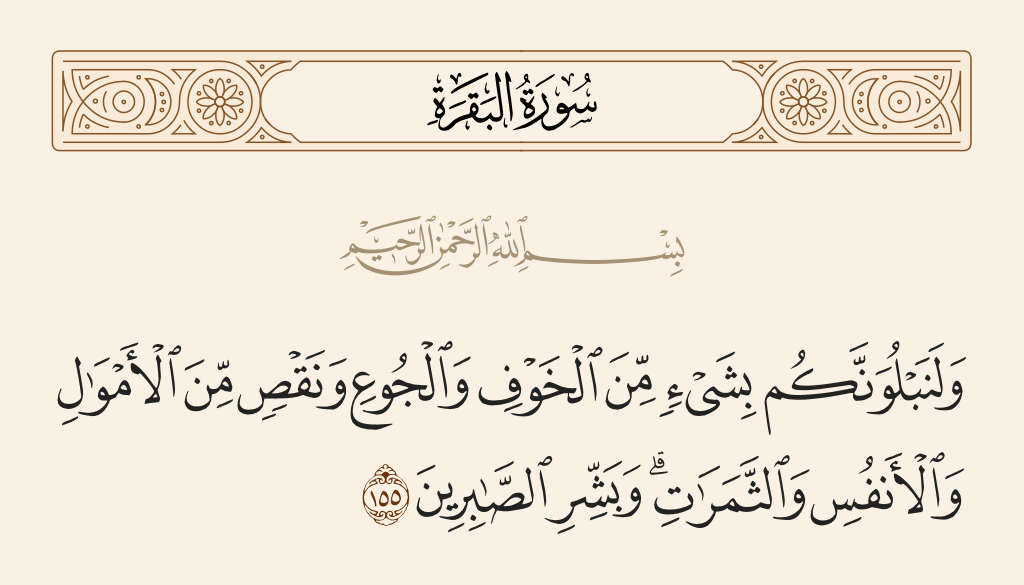 سُورَةُ البَقَرَةِ
بِسْمِ ٱللَّهِ ٱلرَّحْمَٰنِ ٱلرَّحِيمِ
وَلَنَبْلُوَنَّكُم بِشَىْءٍ مِّنَ ٱلْخَوْفِ وَٱلْجُوعِ وَنَقْصٍ مِّنَ ٱلْأَمْوَٰلِ
وَٱلْأَنفُسِ وَٱلثَّمَرَٰتِ ۗ وَبَشِّرِ ٱلصَّٰبِرِينَ ١٥٥